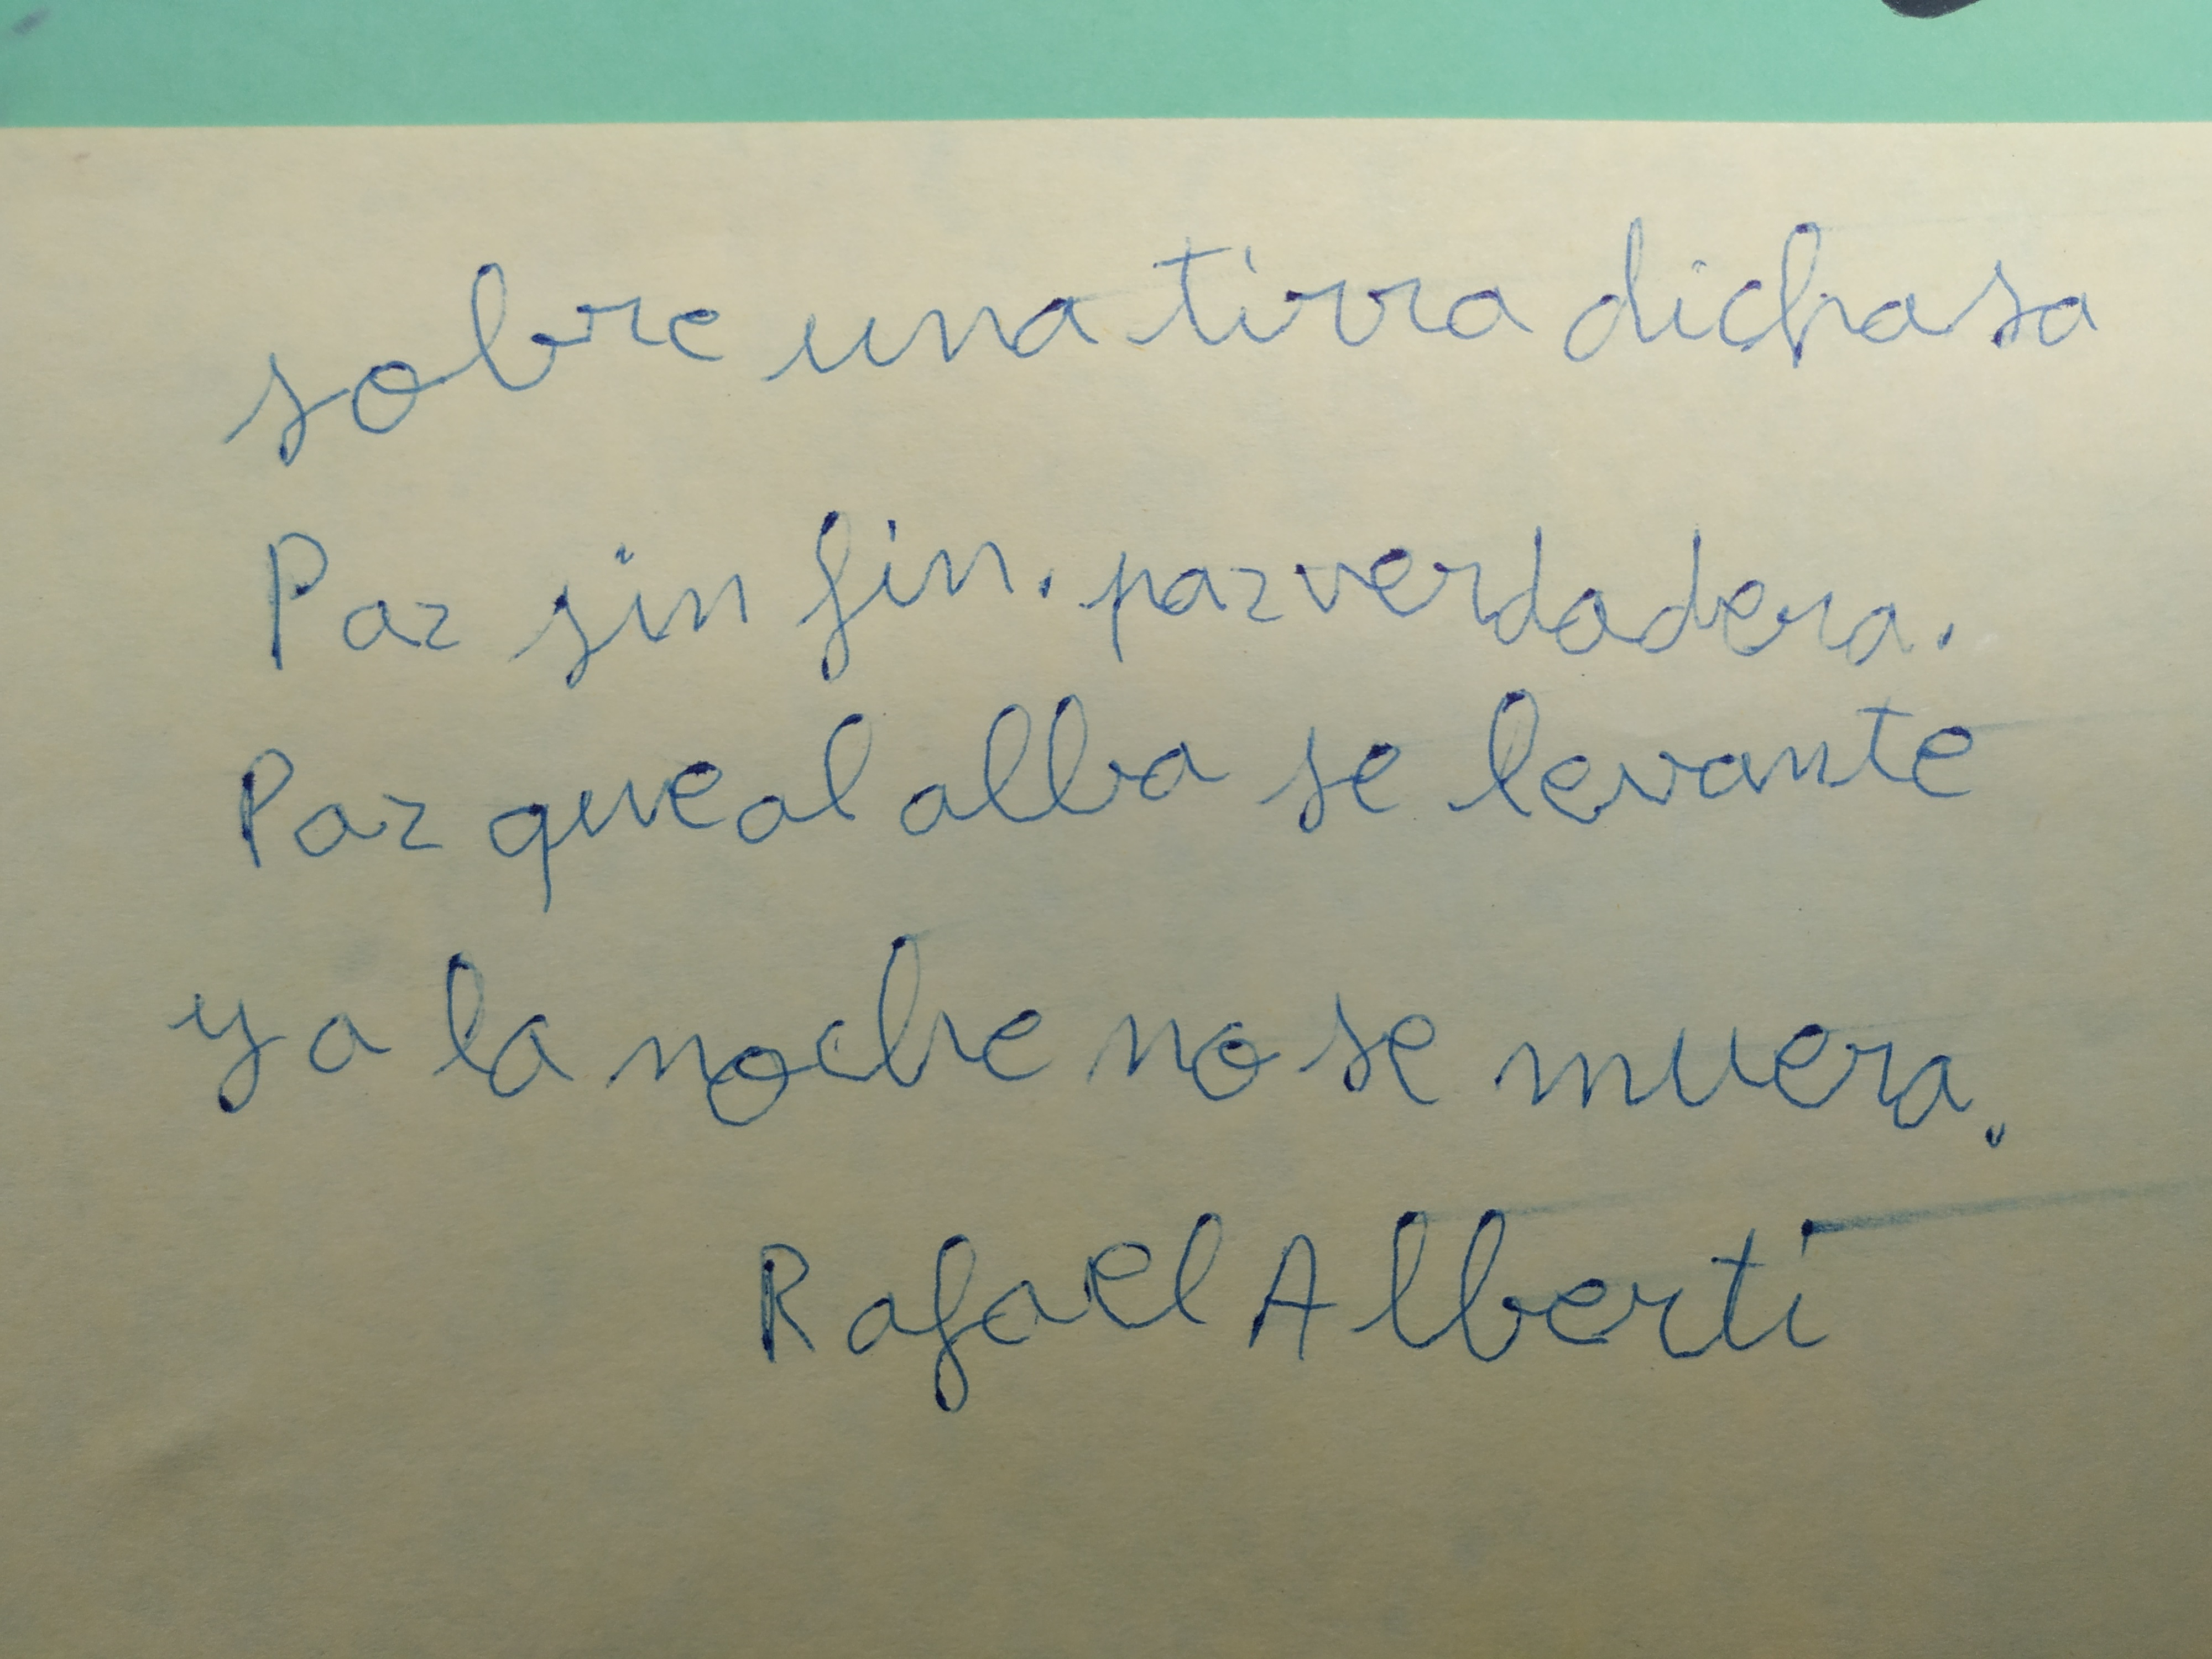 sobre una tirra dichasa
Paz sin fin. paz verdadera.
Paz que al alba se levante
y a la noche no se muera.
Rafael Alberti